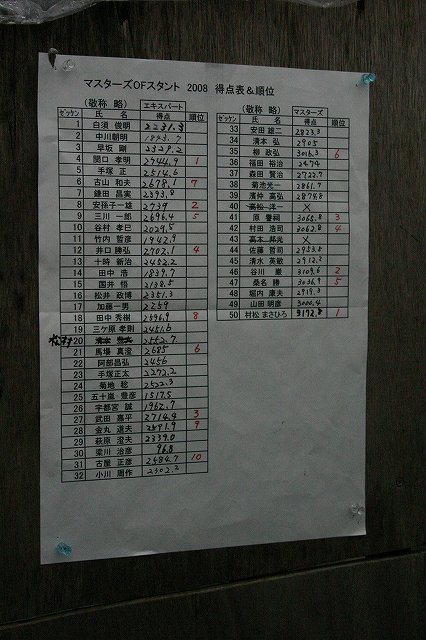 マスターズOFスタント 2008 得点表&順位
(敬称 略) エキスパート
ゼッケン 氏 名 得点 順位
1 白須 俊明 2231.3
2 中川朝明
3 早坂 剛 2329.2
4 関口 孝明 2744.9 1
5 手塚 正 2514.6
6 古山 和夫 2678.1 7
7 鎌田 昌実 2393.8
8 安孫子一雄 2739 2
9 三川 一郎 2696.4 5
10 谷村 孝巳 2029.5
11 竹内 哲彦 1942.9
12 井口 勝弘 2702.1 4
13 十時 新治 2452.2
14 田中 浩 1839.7
15 国井 悟 2138.5
16 松井 政博 2351.3
17 加藤一男 2259
18 田中 秀樹 2596.9 8
19 三ケ原 孝則 2451.6
20 2552.7
21 馬場 真澄 2685 6
22 阿部昌弘 2456
23 手塚正太 2272.2
24 菊地 稔 2522.3
25 五十嵐 豊彦 1517.5
26 宇都宮 誠 1962.7
27 武田 嘉平 2714.4 3
28 金丸 道夫 2591.9 9
29 萩原 澄夫 2339.0
30 梁川 治彦 96.8
31 古屋 正彦 2584.7 10
32 小川 周作 2302.2
(敬称 略) マスターズ
ゼッケン 氏 名 得点 順位
33 安田 雄二 2823.3
34 清本 弘 2905
35 柳 政弘 3016.3 6
36 福田 裕治 2474
37 森田 賢治 2722.7
38 菊池光一 2861.7
39 濱仲 高弘 2874.8
40 高松 洋一 ×
41 原 誉嗣 3068.8 3
42 村田 浩司 3062.8 4
43 高本 邦光 ×
44 佐藤 哲司 2953.5
45 清水 英敏 2912.3
46 谷川 巌 3109.6 2
47 桑名 勝 3036.9 5
48 堀内 康夫 2919.3
49 山田 明彦 3000.4
50 村松 まさひろ 3192.8 1